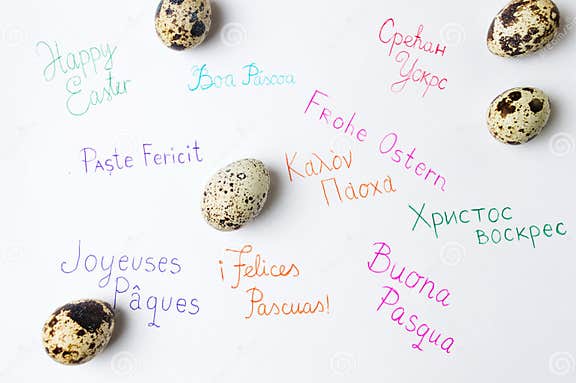 Happy
Easter
Boa Páscoa
Срећан
Ускрс
Frohe Ostern
Paște Fericit
Καλόν
Πάσχα
Христос
воскрес
Joyeuses
Pâques
¡Felices
Pascuas!
Buona
Pasqua